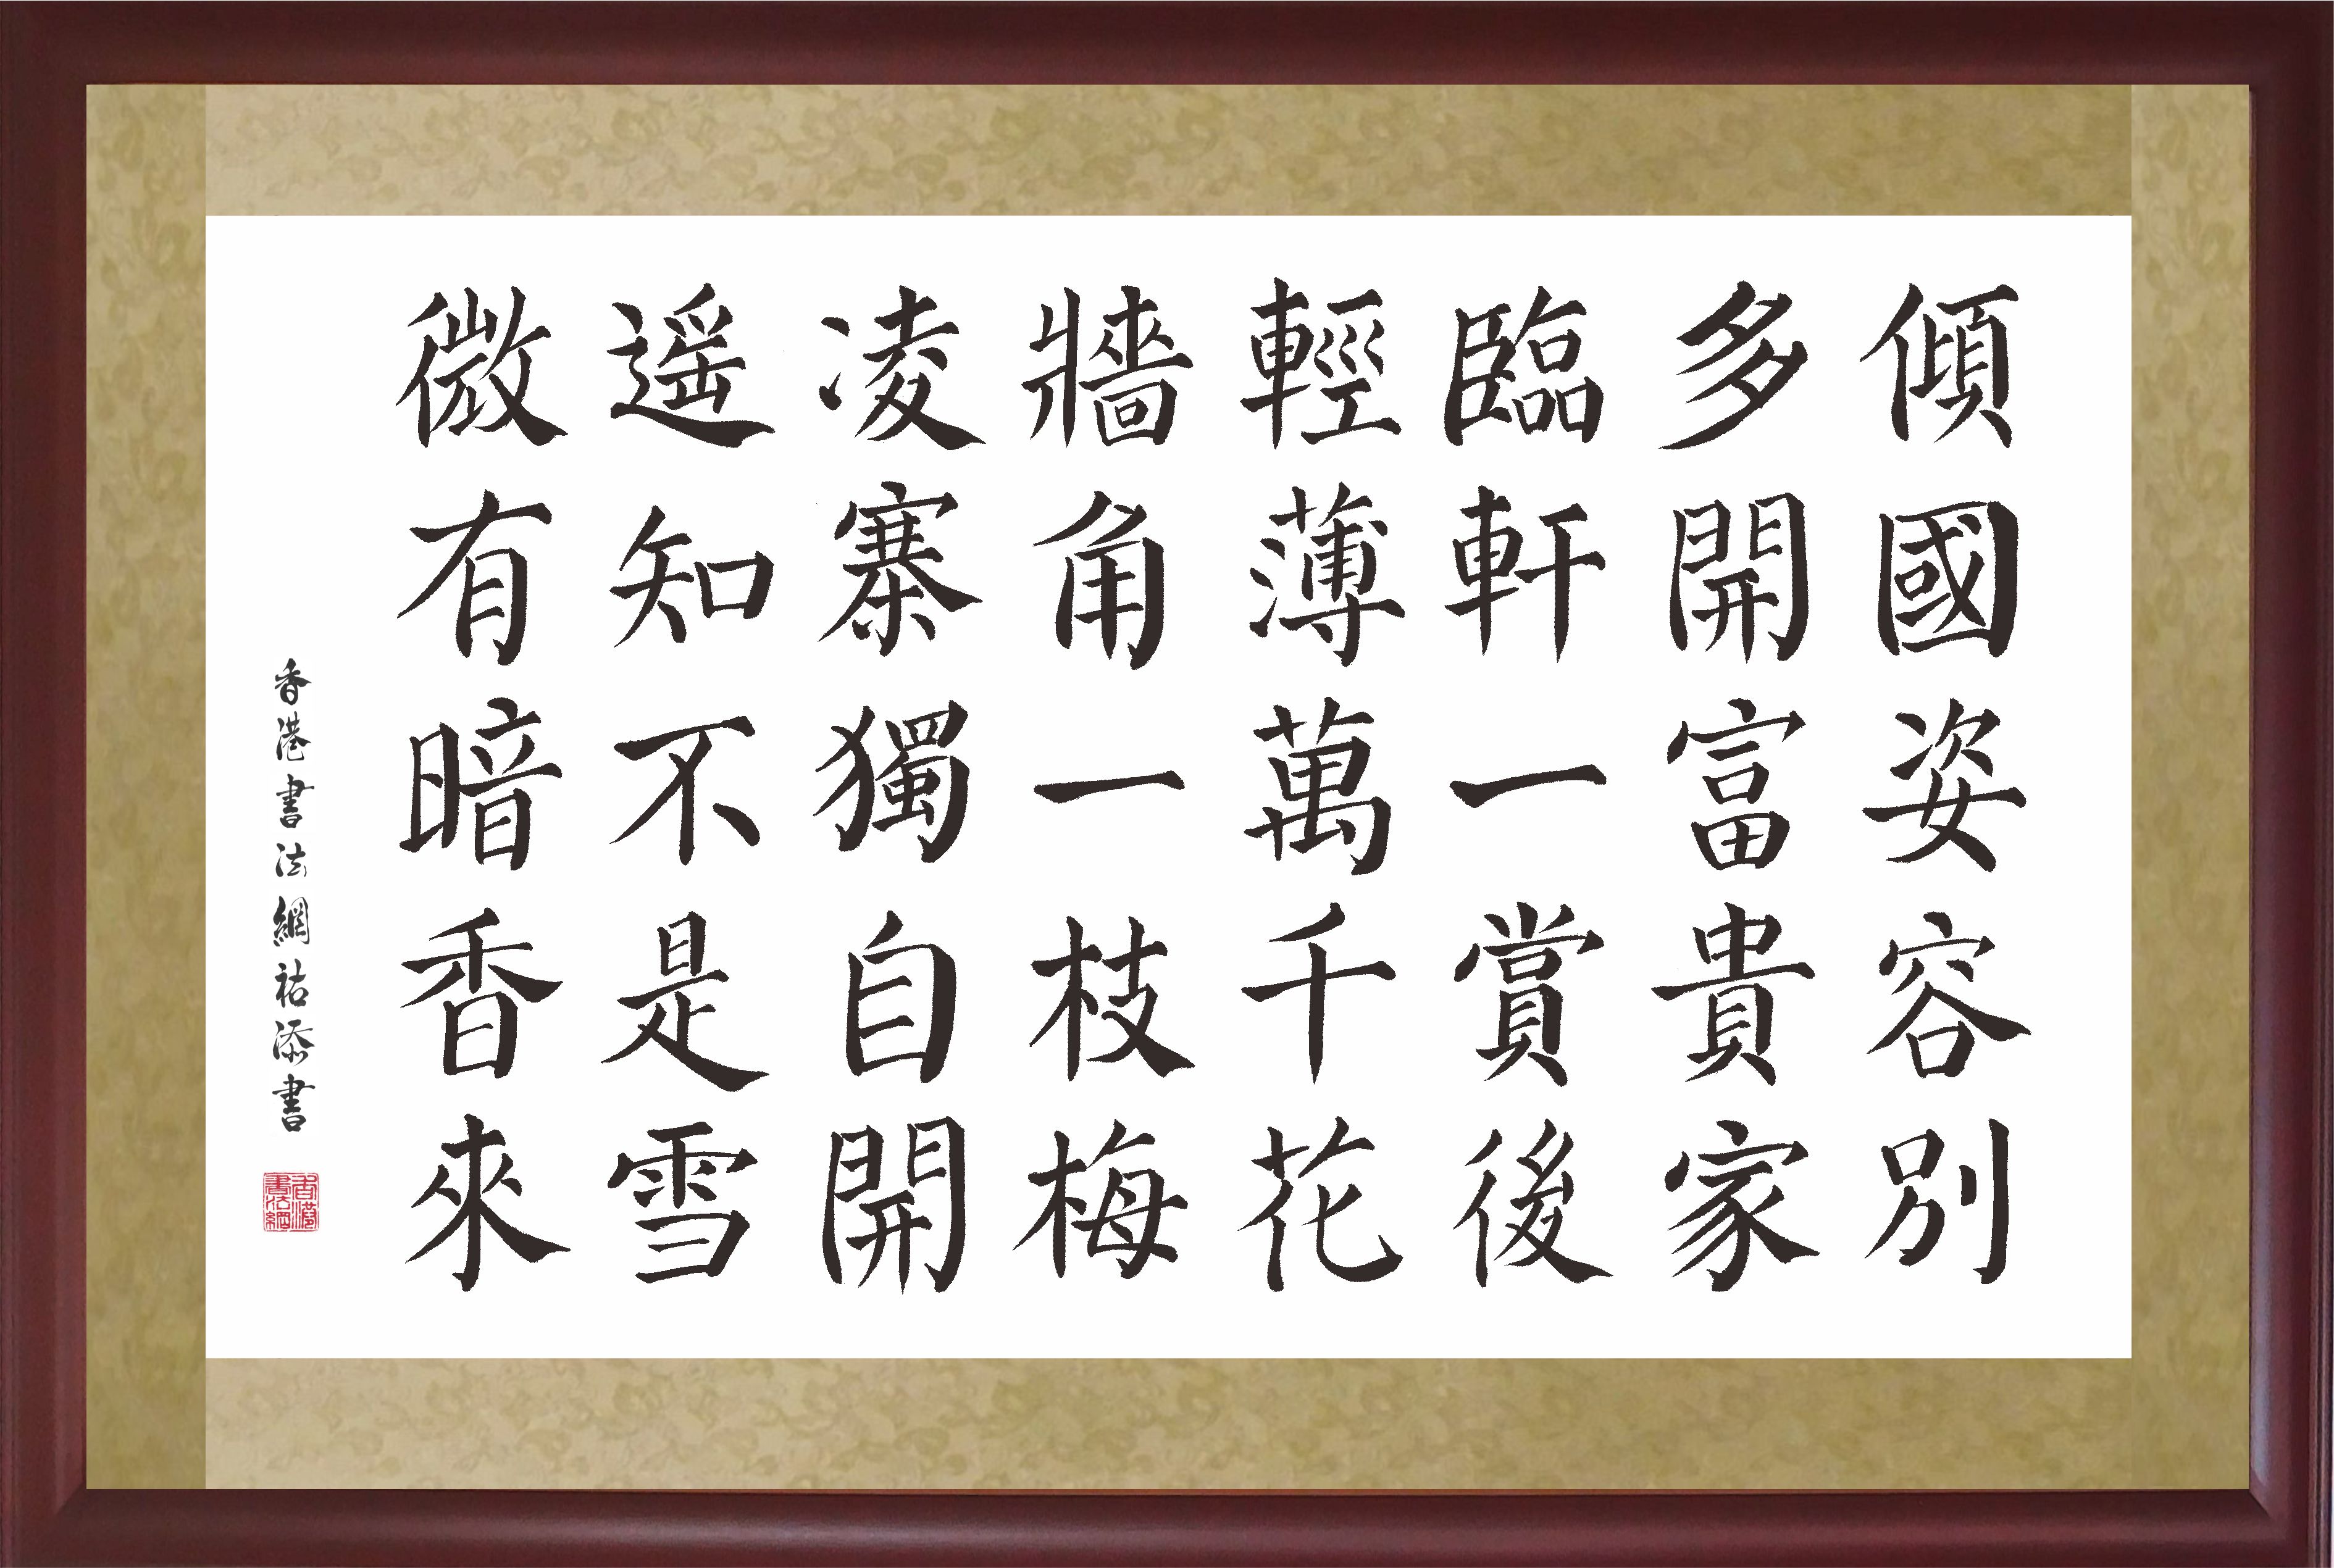 傾國姿容別
多開富貴家
臨軒一賞後
輕薄萬千花
牆角一枝梅
凌寨獨自開
遥知不是雪
微有暗香來
香港書法網祜添書
香港書法網